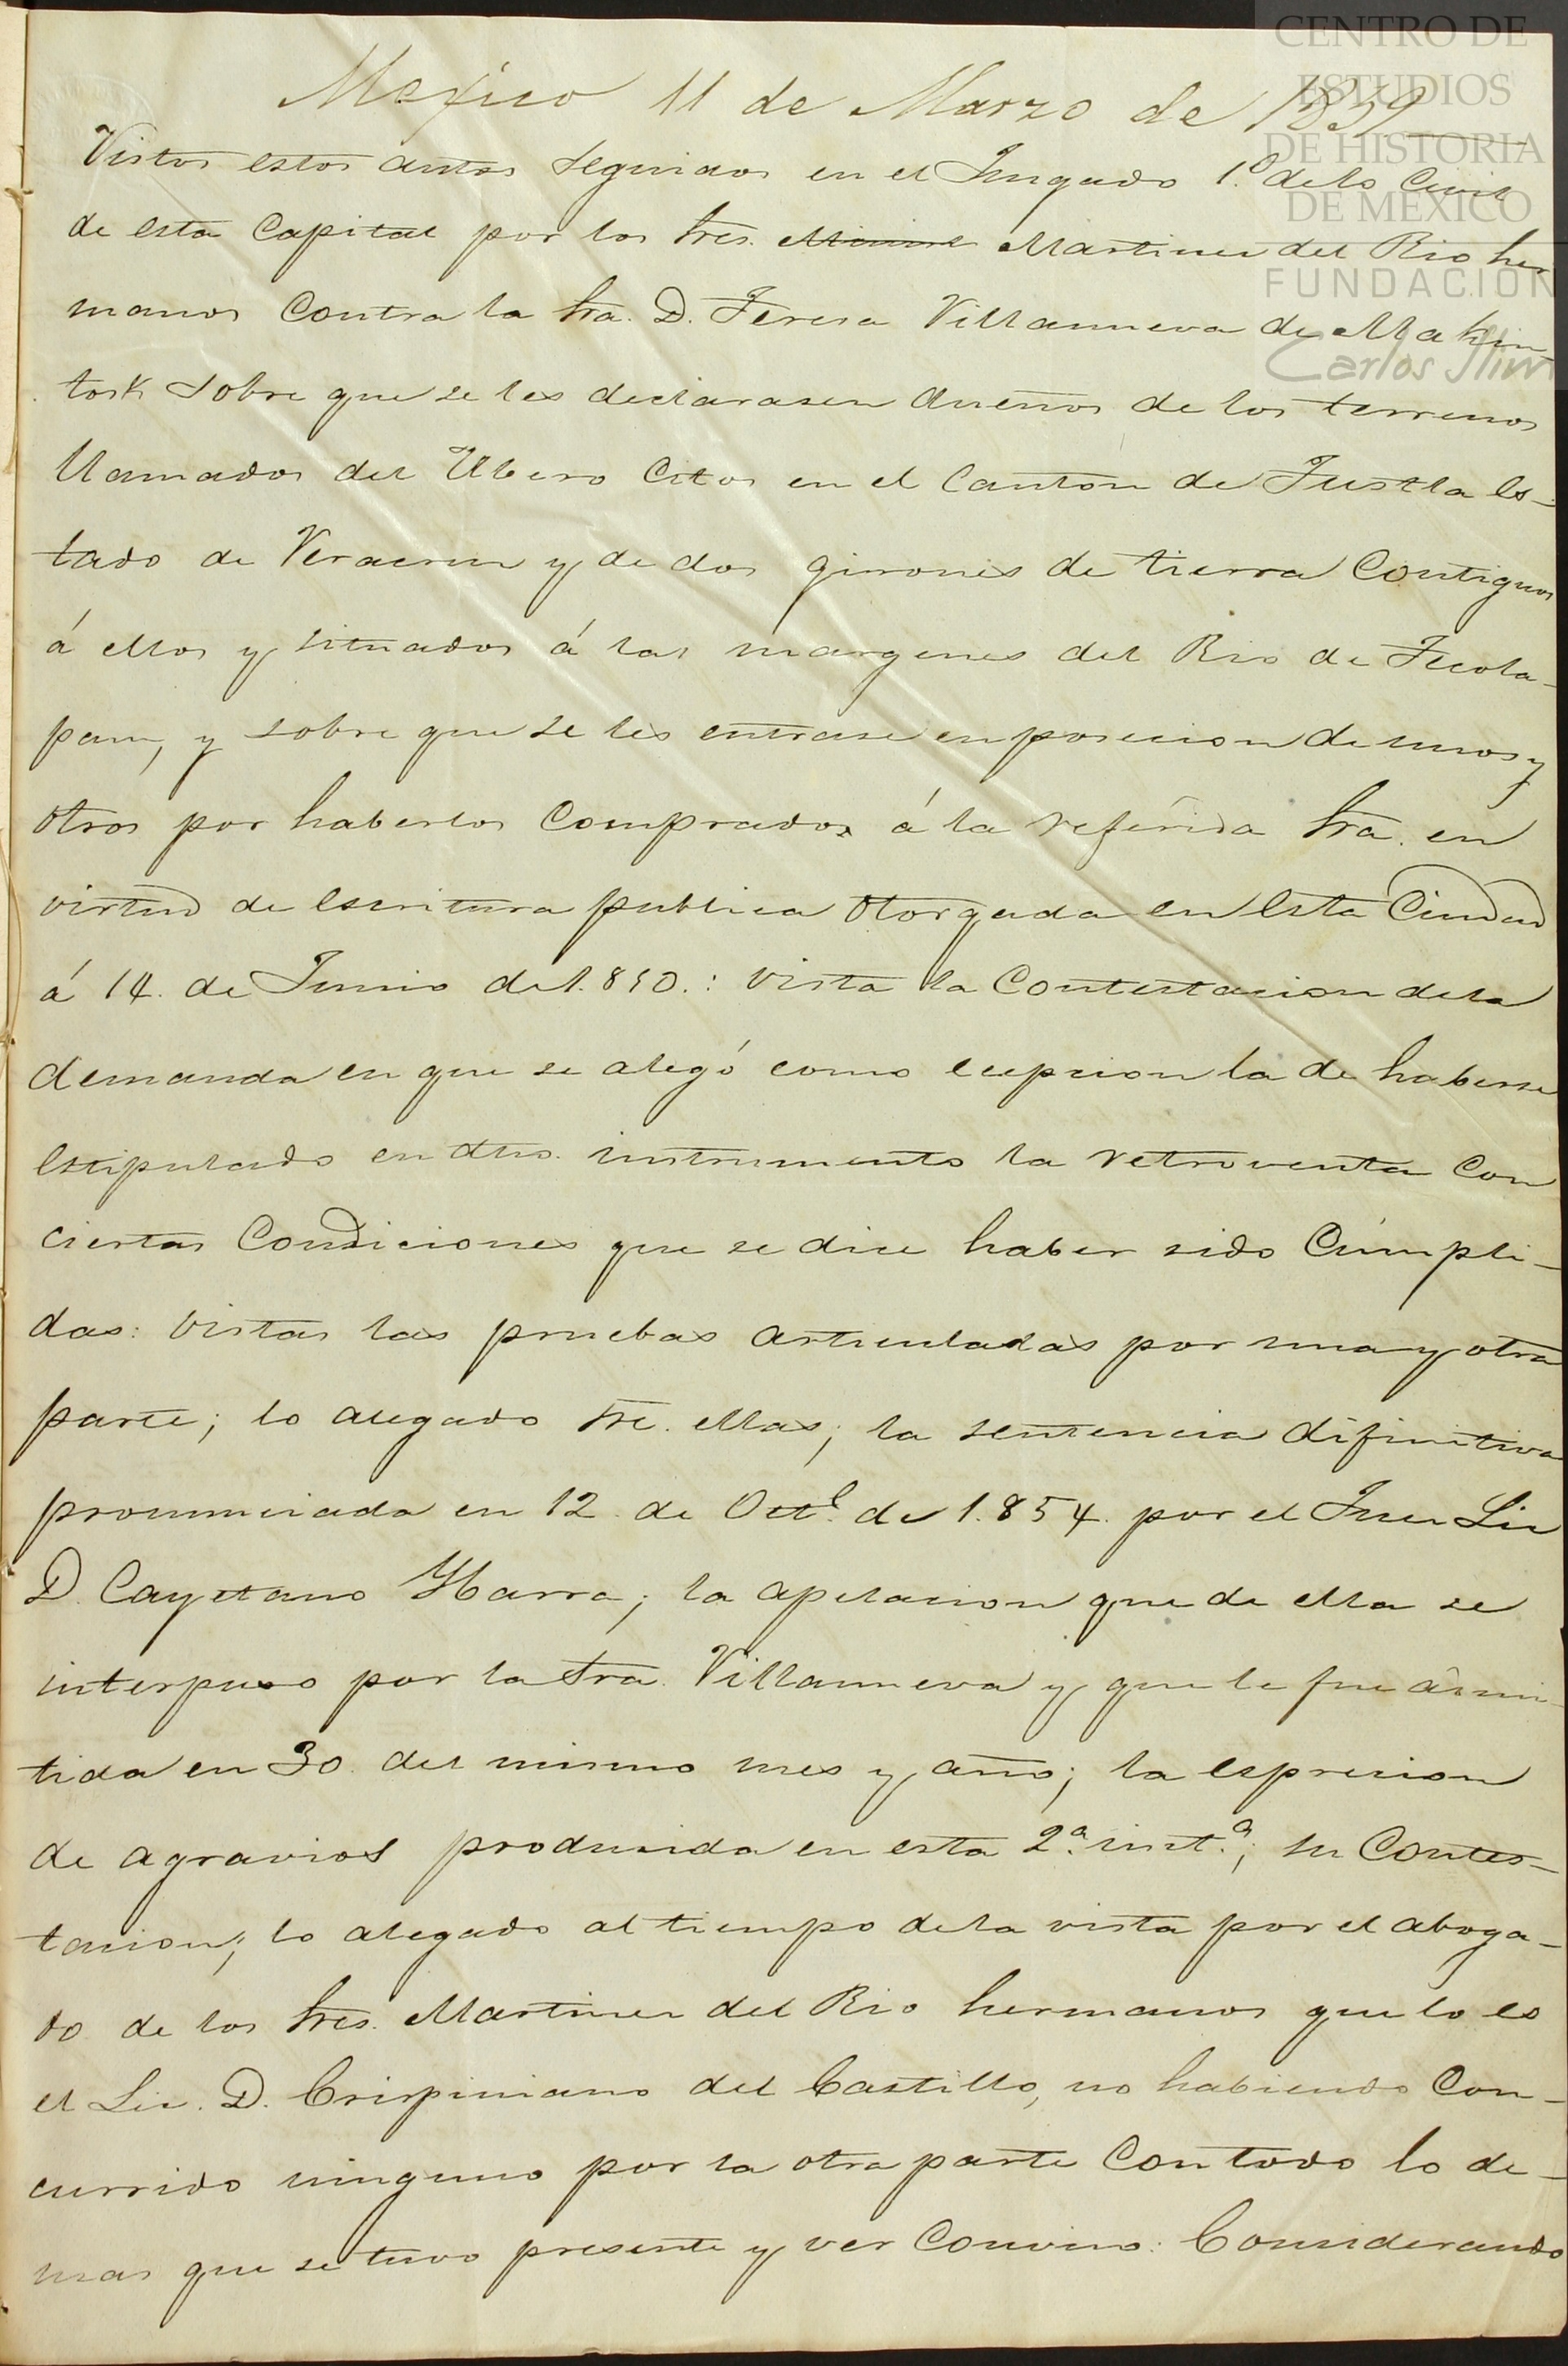 Mexico 11 de Marzo de 1859
Vistos estos autos seguidos en el Juzgado 1.º de lo Civil
de esta Capital por los Sres. Martinez del Rio her
manos Contra la Sra. D. Teresa Villanueva de Makin
tosh sobre que se les declarasen dueños de los terrenos
llamados del Ubero Citos en el Canton de Tustla Es-
tado de Veracruz y de dos girones de tierra Contiguos
á ellos y situados á las margenes del Rio de Tecola-
pam, y sobre que se les entrase en posecion de unos y
otros por haberlos Comprados á la referida Sra. en
virtud de Escritura publica otorgada en Esta Ciudad
á 14. de Junio de 1.850.: vista la Contestacion de la
demanda en que se alegó como ecepcion la de haberse
Estipulado en dho. instrumento la retroventa Con
ciertas Condiciones que se dice haber sido Cumpli-
das: vistas las pruebas articuladas por una y otra
parte; lo alegado sre. ellas; la sentencia difinitiva
pronunciada en 12. de Octe. de 1.854. por el Juez Lic
D. Cayetano Ybarra; la apelacion que de ella se
interpuso por la Sra. Villanueva y que le fue admi-
tida en 30. del mismo mes y año; la espresion
de agravios producida en esta 2.ª inst.ª; su Contes-
tacion; lo alegado al tiempo de la vista por el aboga-
do de los Sres. Martinez del Rio hermanos que lo es
el Lic. D. Crispiniano del Castillo, no habiendo Con-
currido ninguno por la otra parte Con todo lo de-
mas que se tuvo presente y ver Convino: Considerando
CENTRO DE
ESTUDIOS
DE HISTORIA
DE MÉXICO
FUNDACIÓN
Carlos Slim